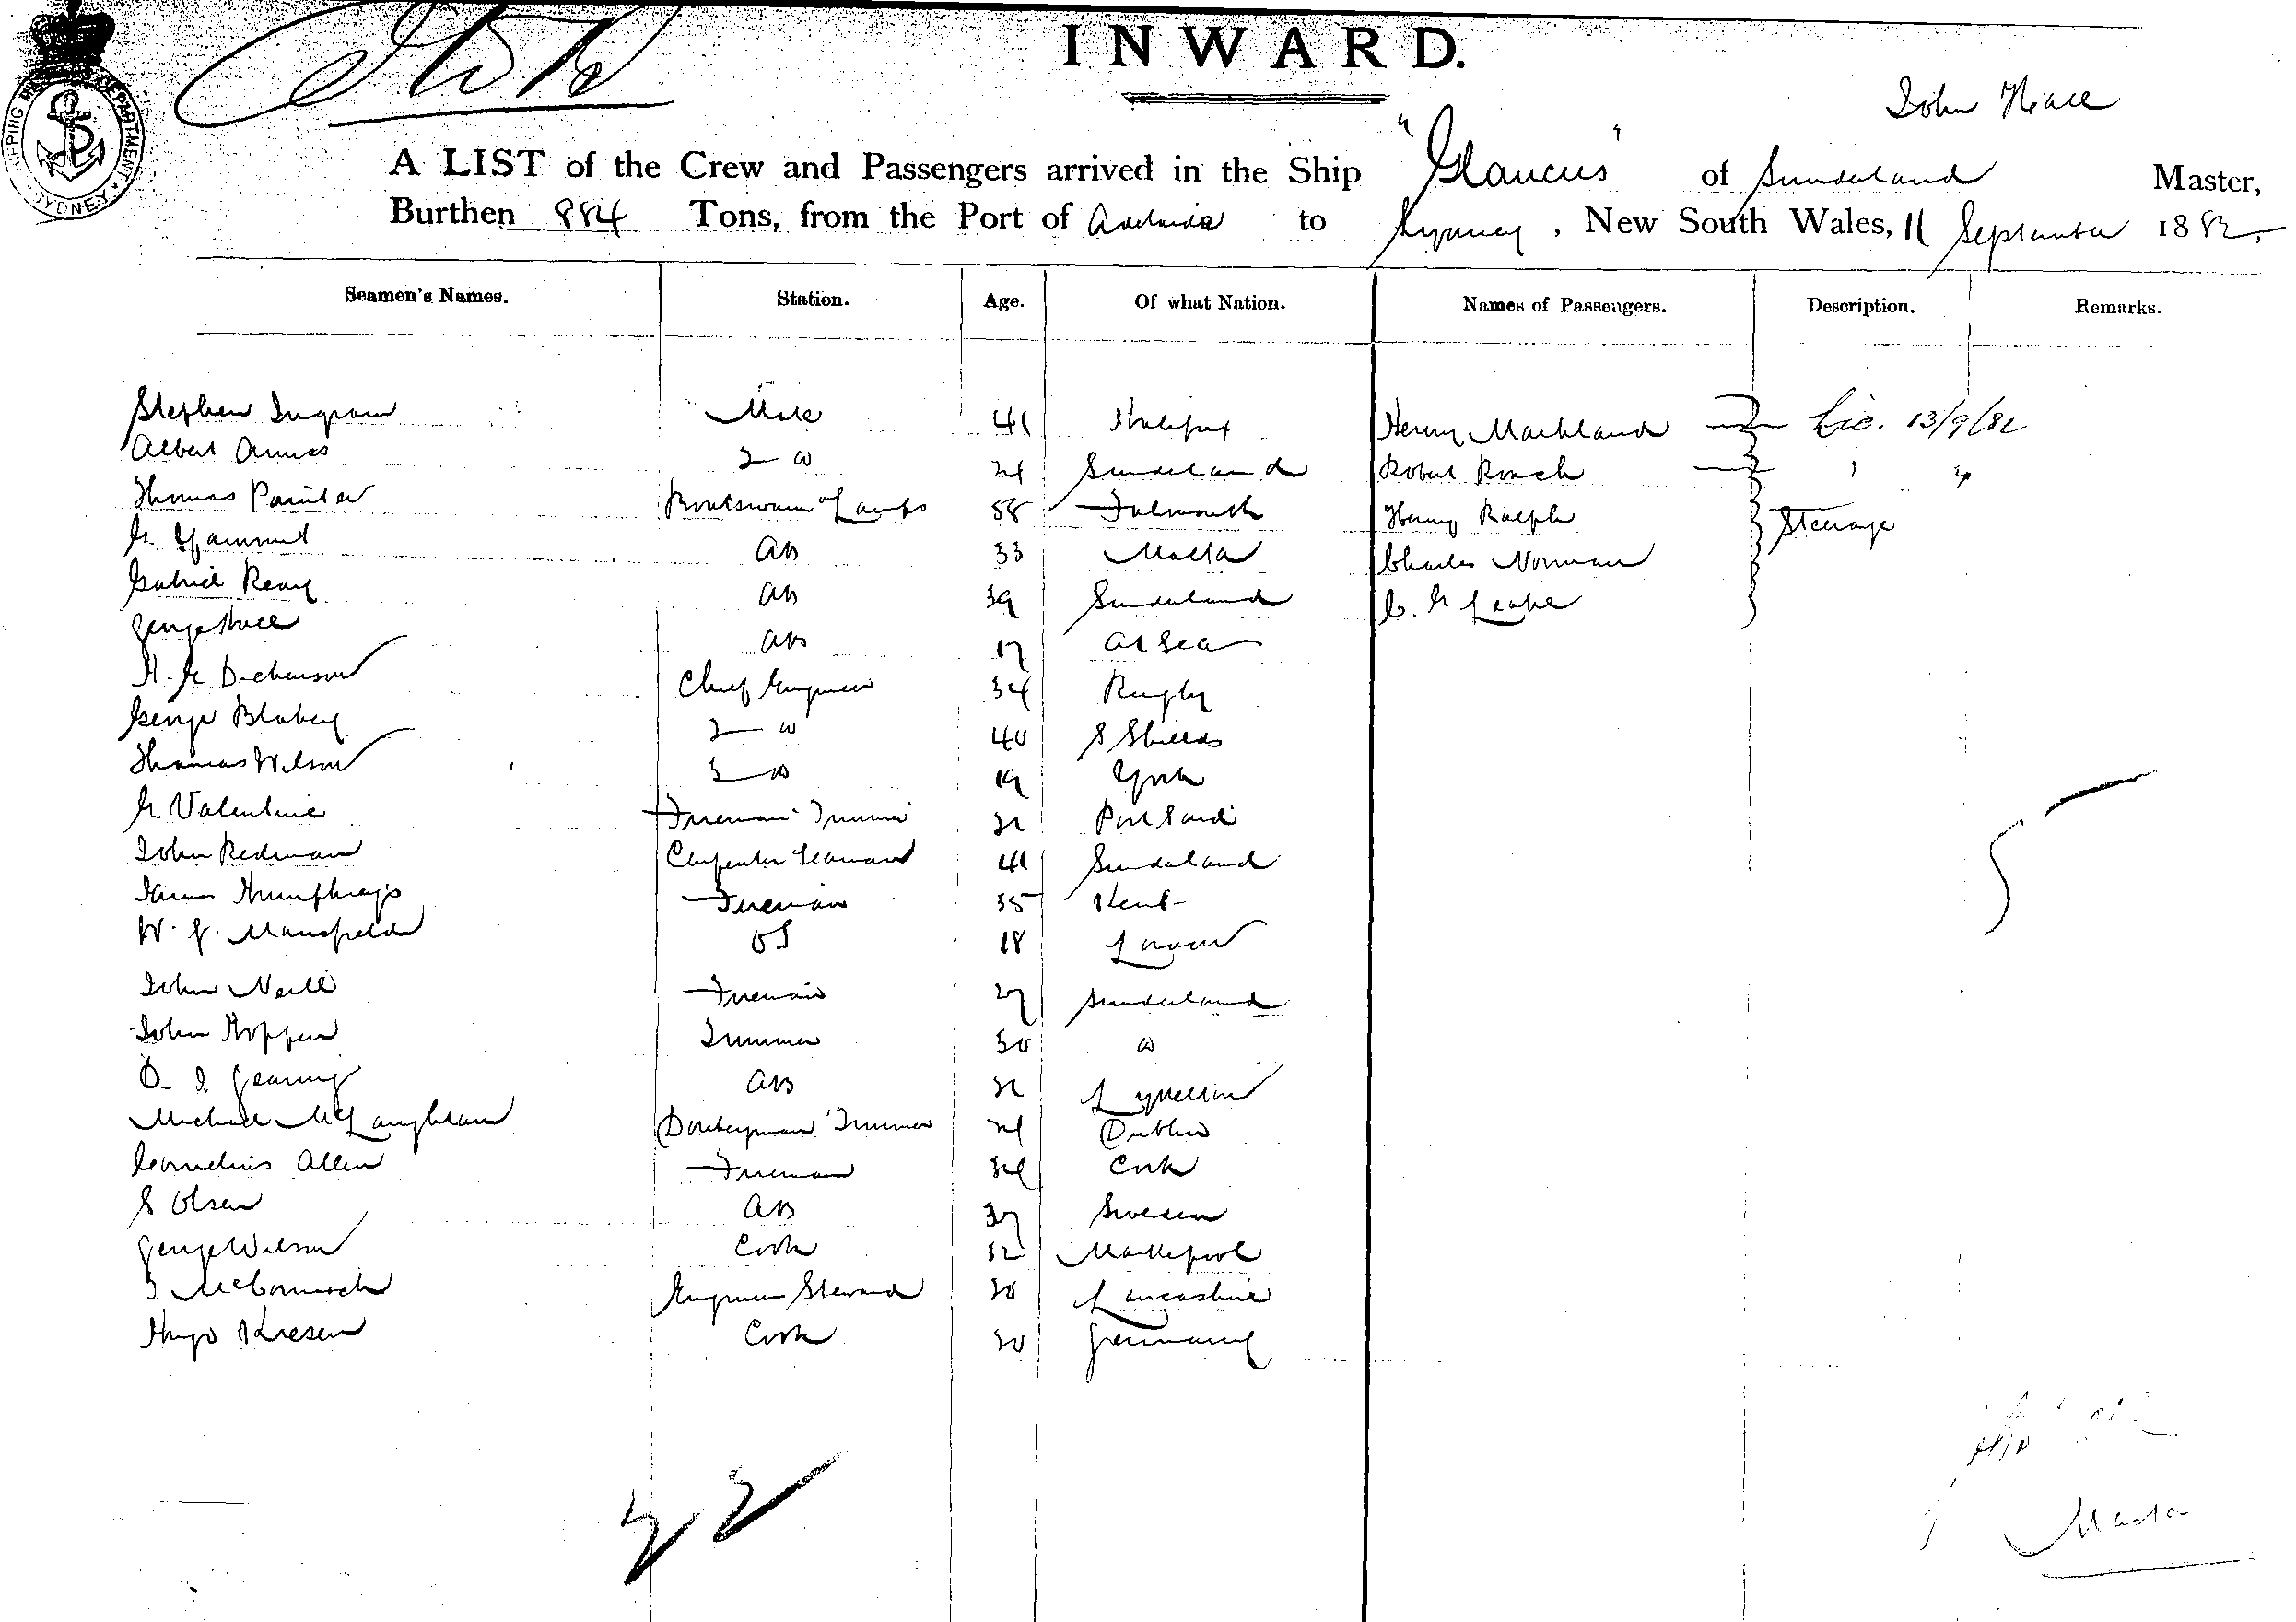 INWARD.
SHIPPING MASTER'S DEPARTMENT SYDNEY
John
A LIST of the Crew and Passengers arrived in the Ship "Glaucus" of Sunderland Master,
Burthen 884 Tons, from the Port of Adelaide to Sydney, New South Wales, 11 September 1882
Seamen's Names. Station. Age. Of what Nation. Names of Passengers. Description. Remarks.
Stephen Ingram Mate 41 Halifax Henry Markland Lic. 13/9/82
Albert Annis 2 Do 24 Sunderland Robert Roach " "
Thomas Painter Boatswain & Lamps 58 Falmouth Henry Ralph Steerage
G Gammut AB 33 Malta Charles Norman
Gabriel Reay AB 39 Sunderland C. G Leake
George AB 17 At Sea
H. G Dickenson Chief Engineer 34 Rugby
George Blakey 2 Do 40 S Shields
Thomas Wilson 3 Do 19 York
G Valentine Fireman Trimmer 32 Portland
John Redman Carpenter Seaman 41 Sunderland
James Humphrays Fireman 35 Kent
W. J. Mansfield OS 18 London
John Neill Fireman 27 Sunderland
John Hopper Trimmer 30 Do
O. J Gearing AB 32
Michael McLaughlan Donkeyman Trimmer 24 Dublin
Cornelius Allen Fireman 34 Cork
S Olsen AB 37 Sweden
George Wilson Cook 32 Hartlepool
J McCormack Engineers Steward 30 Lancashire
Hugo Kresen Cook 30 Germany
5
22
Master